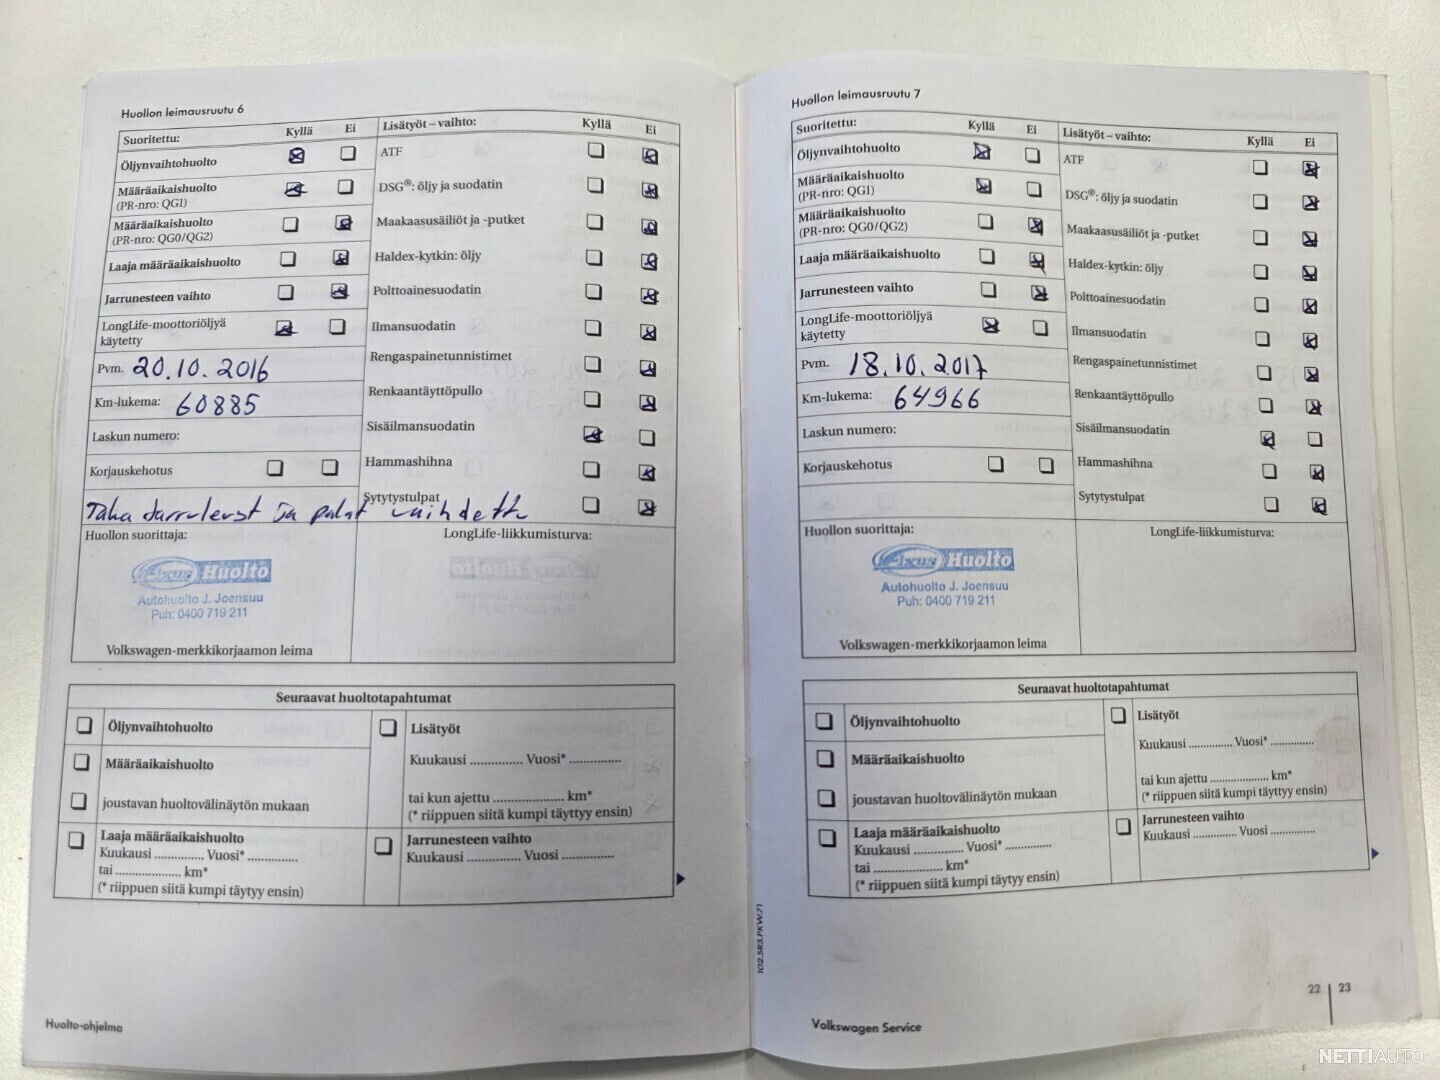 Huollon leimausruutu 6
Suoritettu: Kyllä Ei
Öljynvaihtohuolto
Määräaikaishuolto
(PR-nro: QG1)
Määräaikaishuolto
(PR-nro: QG0/QG2)
Laaja määräaikaishuolto
Jarrunesteen vaihto
LongLife-moottoriöljyä
käytetty
Pvm. 20.10.2016
Km-lukema: 60885
Laskun numero:
Korjauskehotus
Lisätyöt – vaihto: Kyllä Ei
ATF
DSG®: öljy ja suodatin
Maakaasusäiliöt ja -putket
Haldex-kytkin: öljy
Polttoainesuodatin
Ilmansuodatin
Rengaspainetunnistimet
Renkaantäyttöpullo
Sisäilmansuodatin
Hammashihna
Sytytystulpat
Taka Jarrulevyt ja palat vaihdettu
Huollon suorittaja:
Fixus Huolto
Autohuolto J. Joensuu
Puh: 0400 719 211
Volkswagen-merkkikorjaamon leima
LongLife-liikkumisturva:
Seuraavat huoltotapahtumat
Öljynvaihtohuolto
Määräaikaishuolto
joustavan huoltovälinäytön mukaan
Laaja määräaikaishuolto
Kuukausi .............. Vuosi* ..............
tai .................... km*
(* riippuen siitä kumpi täytyy ensin)
Lisätyöt
Kuukausi .............. Vuosi* ..............
tai kun ajettu .................... km*
(* riippuen siitä kumpi täyttyy ensin)
Jarrunesteen vaihto
Kuukausi .............. Vuosi ..............
Huolto-ohjelma
Huollon leimausruutu 7
Suoritettu: Kyllä Ei
Öljynvaihtohuolto
Määräaikaishuolto
(PR-nro: QG1)
Määräaikaishuolto
(PR-nro: QG0/QG2)
Laaja määräaikaishuolto
Jarrunesteen vaihto
LongLife-moottoriöljyä
käytetty
Pvm. 18.10.2017
Km-lukema: 64966
Laskun numero:
Korjauskehotus
Lisätyöt – vaihto: Kyllä Ei
ATF
DSG®: öljy ja suodatin
Maakaasusäiliöt ja -putket
Haldex-kytkin: öljy
Polttoainesuodatin
Ilmansuodatin
Rengaspainetunnistimet
Renkaantäyttöpullo
Sisäilmansuodatin
Hammashihna
Sytytystulpat
Huollon suorittaja:
Fixus Huolto
Autohuolto J. Joensuu
Puh: 0400 719 211
Volkswagen-merkkikorjaamon leima
LongLife-liikkumisturva:
Seuraavat huoltotapahtumat
Öljynvaihtohuolto
Määräaikaishuolto
joustavan huoltovälinäytön mukaan
Laaja määräaikaishuolto
Kuukausi .............. Vuosi* ..............
tai .................... km*
(* riippuen siitä kumpi täytyy ensin)
Lisätyöt
Kuukausi .............. Vuosi* ..............
tai kun ajettu .................... km*
(* riippuen siitä kumpi täyttyy ensin)
Jarrunesteen vaihto
Kuukausi .............. Vuosi ..............
102.5R3.PKW.71
Volkswagen Service
22 | 23
NETTIAUTO